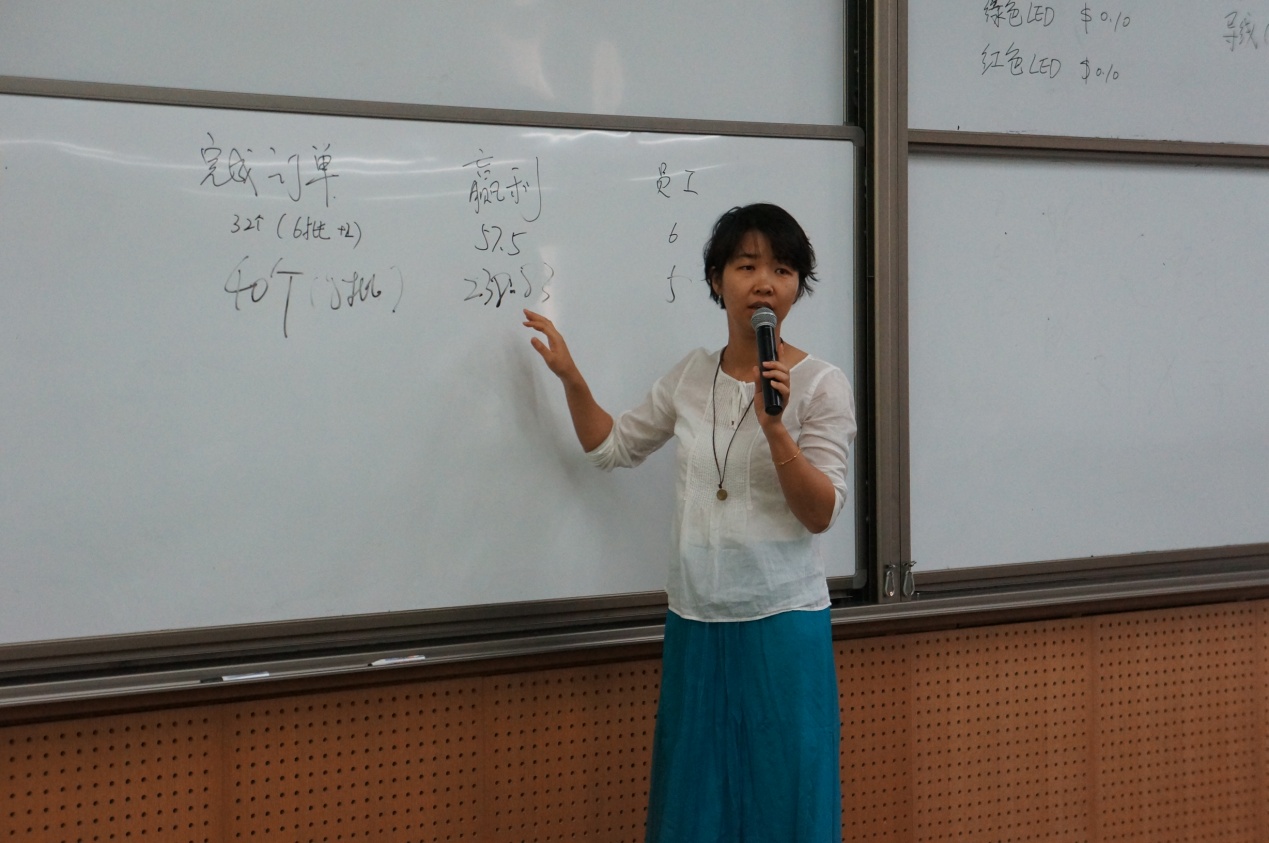 完成订单 赢利 员工
32个 (6批+2) 57.5 6
40个 (8批) 232.83 5
绿色LED $0.10
红色LED $0.10
导线